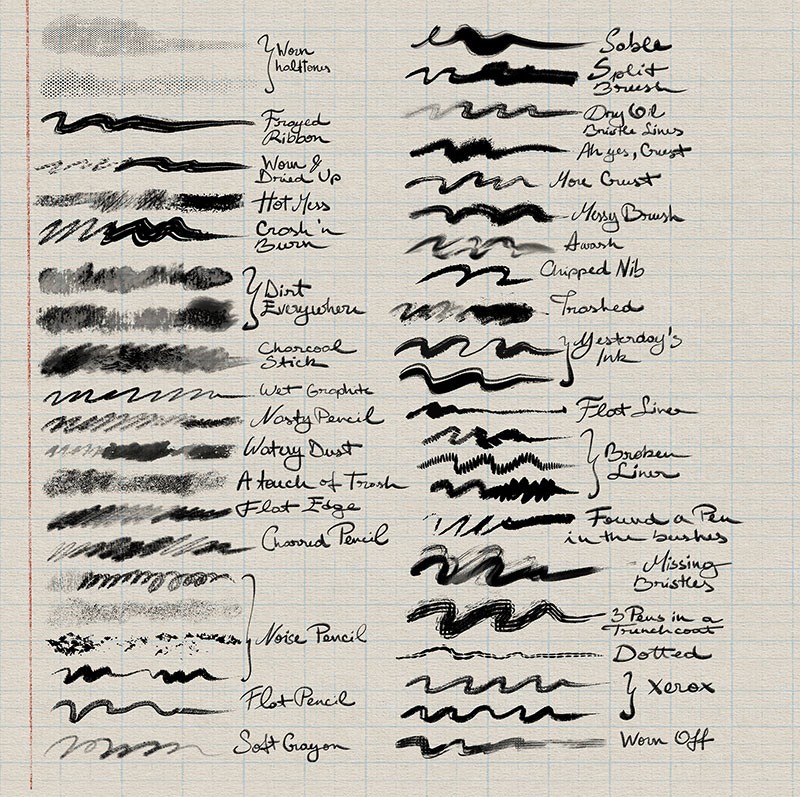 Worn
halftones
Frayed
Ribbon
Worn &
Dried Up
Hot Mess
Crash 'n
Burn
Dirt
Everywhere
Charcoal
Stick
Wet Graphite
Nasty Pencil
Watery Dust
A touch of Trash
Flat Edge
Charred Pencil
Noise Pencil
Flat Pencil
Soft Crayon
Sable
Split
Brush
Dry Oil
Bristle Lines
Ah yes, Crust
More Crust
Messy Brush
Awash
Chipped Nib
Trashed
Yesterday's
Ink
Flat Liner
Broken
Liner
Found a Pen
in the bushes
Missing
Bristles
3 Pens in a
Trenchcoat
Dotted
Xerox
Worn Off